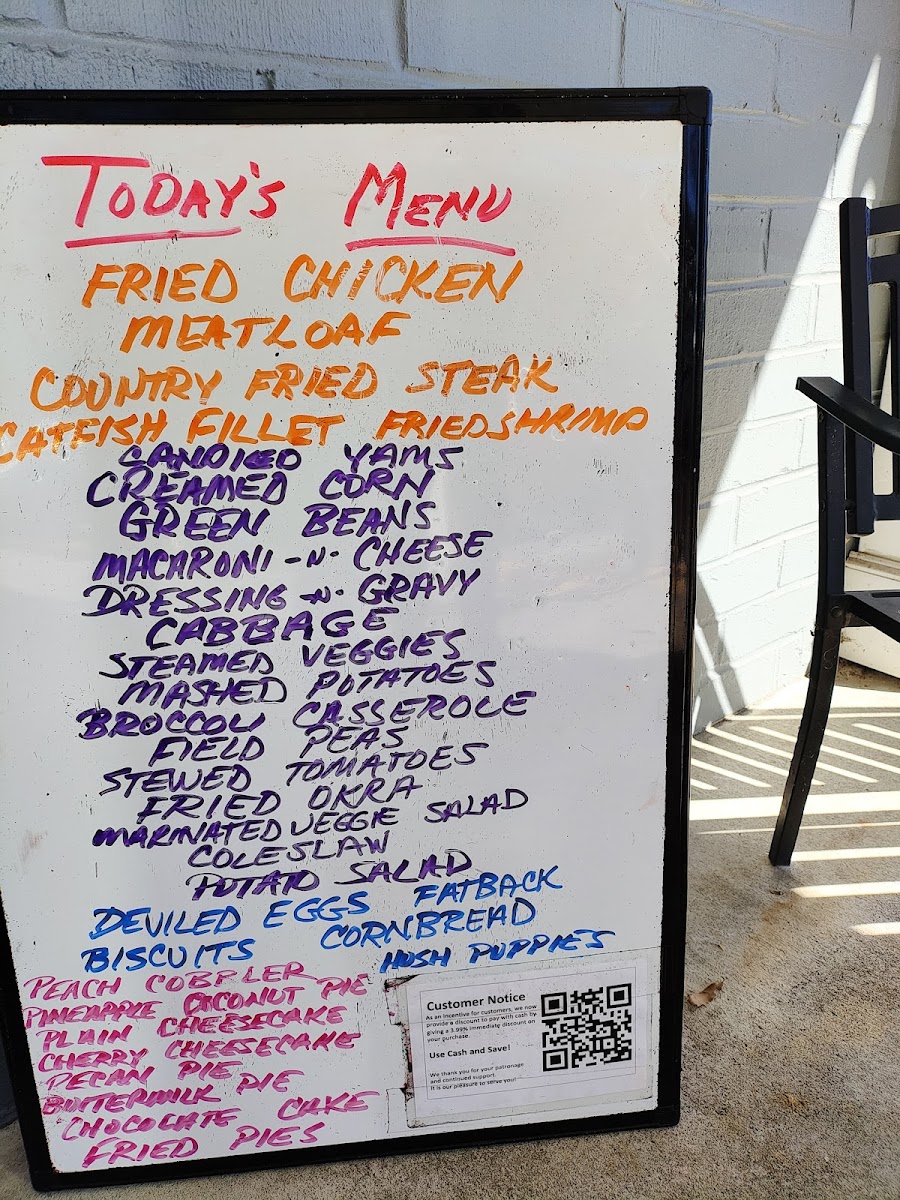 TODAY'S MENU
FRIED CHICKEN
MEATLOAF
COUNTRY FRIED STEAK
CATFISH FILLET FRIED SHRIMP
CANDIED YAMS
CREAMED CORN
GREEN BEANS
MACARONI -N- CHEESE
DRESSING -N- GRAVY
CABBAGE
STEAMED VEGGIES
MASHED POTATOES
BROCCOLI CASSEROLE
FIELD PEAS
STEWED TOMATOES
FRIED OKRA
MARINATED VEGGIE SALAD
COLESLAW
POTATO SALAD
DEVILED EGGS FATBACK
BISCUITS CORNBREAD
HUSH PUPPIES
PEACH COBBLER
PINEAPPLE COCONUT PIE
PLAIN CHEESECAKE
CHERRY CHEESECAKE
PECAN PIE
BUTTERMILK PIE
CHOCOLATE CAKE
FRIED PIES
Customer Notice
As an incentive for customers, we now
provide a discount to pay with cash by
giving a 3.99% immediate discount on
your purchase.
Use Cash and Save!
We thank you for your patronage
and continued support.
It is our pleasure to serve you!